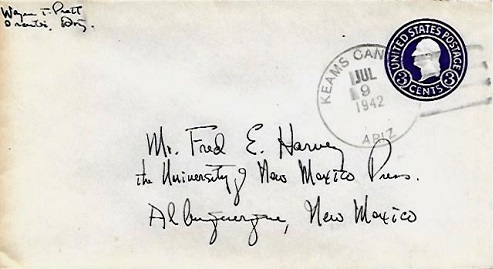 Wayne T. Pratt
Oraibi, Ariz.
UNITED STATES POSTAGE
3 CENTS 3
KEAMS CAN
JUL
9
1942
ARIZ
Mr. Fred E. Harvey
the University of New Mexico Press.
Albuquerque, New Mexico